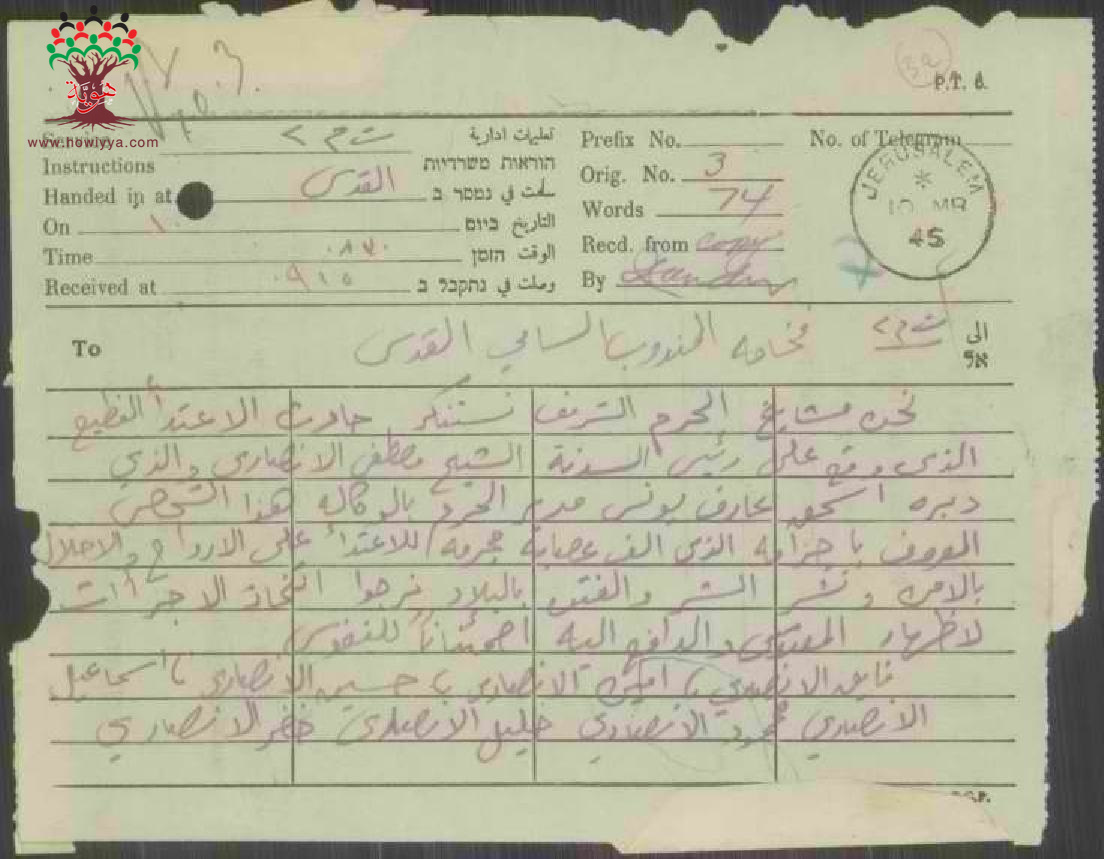 هوية
www.howiyya.com
32
P.T. 6.
Service
تعليمات ادارية
Instructions
הוראות משרדיות
Handed in at القدس سلمت في נמסר ב
On ١٠ التاريخ ביום
Time ٠٨٧٠ الوقت הזמן
Received at ٠٩١٥ وصلت في נתקבל ב
Prefix No.
No. of Telegram
Orig. No. 3
Words 74
Recd. from copy
By
JERUSALEM
10 MR
45
To
الى
אל
فخامه المندوب السامي القدس
نحن مشايخ الحرم الشريف نستنكر حادث الاعتدأ الفظيع
الذي وقع على رئيس السدنة الشيخ مصطفى الانصاري والذي
دبره اسحق عارف يونس مدير الحرم بالوكاله هذا الشخص
المعروف باجرامه الذي الف عصابة مجرمه للاعتدأ على الارواح والاخلال
بالامن ونشر الشر والفتن بالبلاد نرجوا اتخاذ الاجراأت
لاظهار المعتدي والدافع اليه اطمئناناً للنفوس
الانصاري امين الانصاري حسين الانصاري اسماعيل
الانصاري محمود الانصاري خليل الانصاري خضر الانصاري